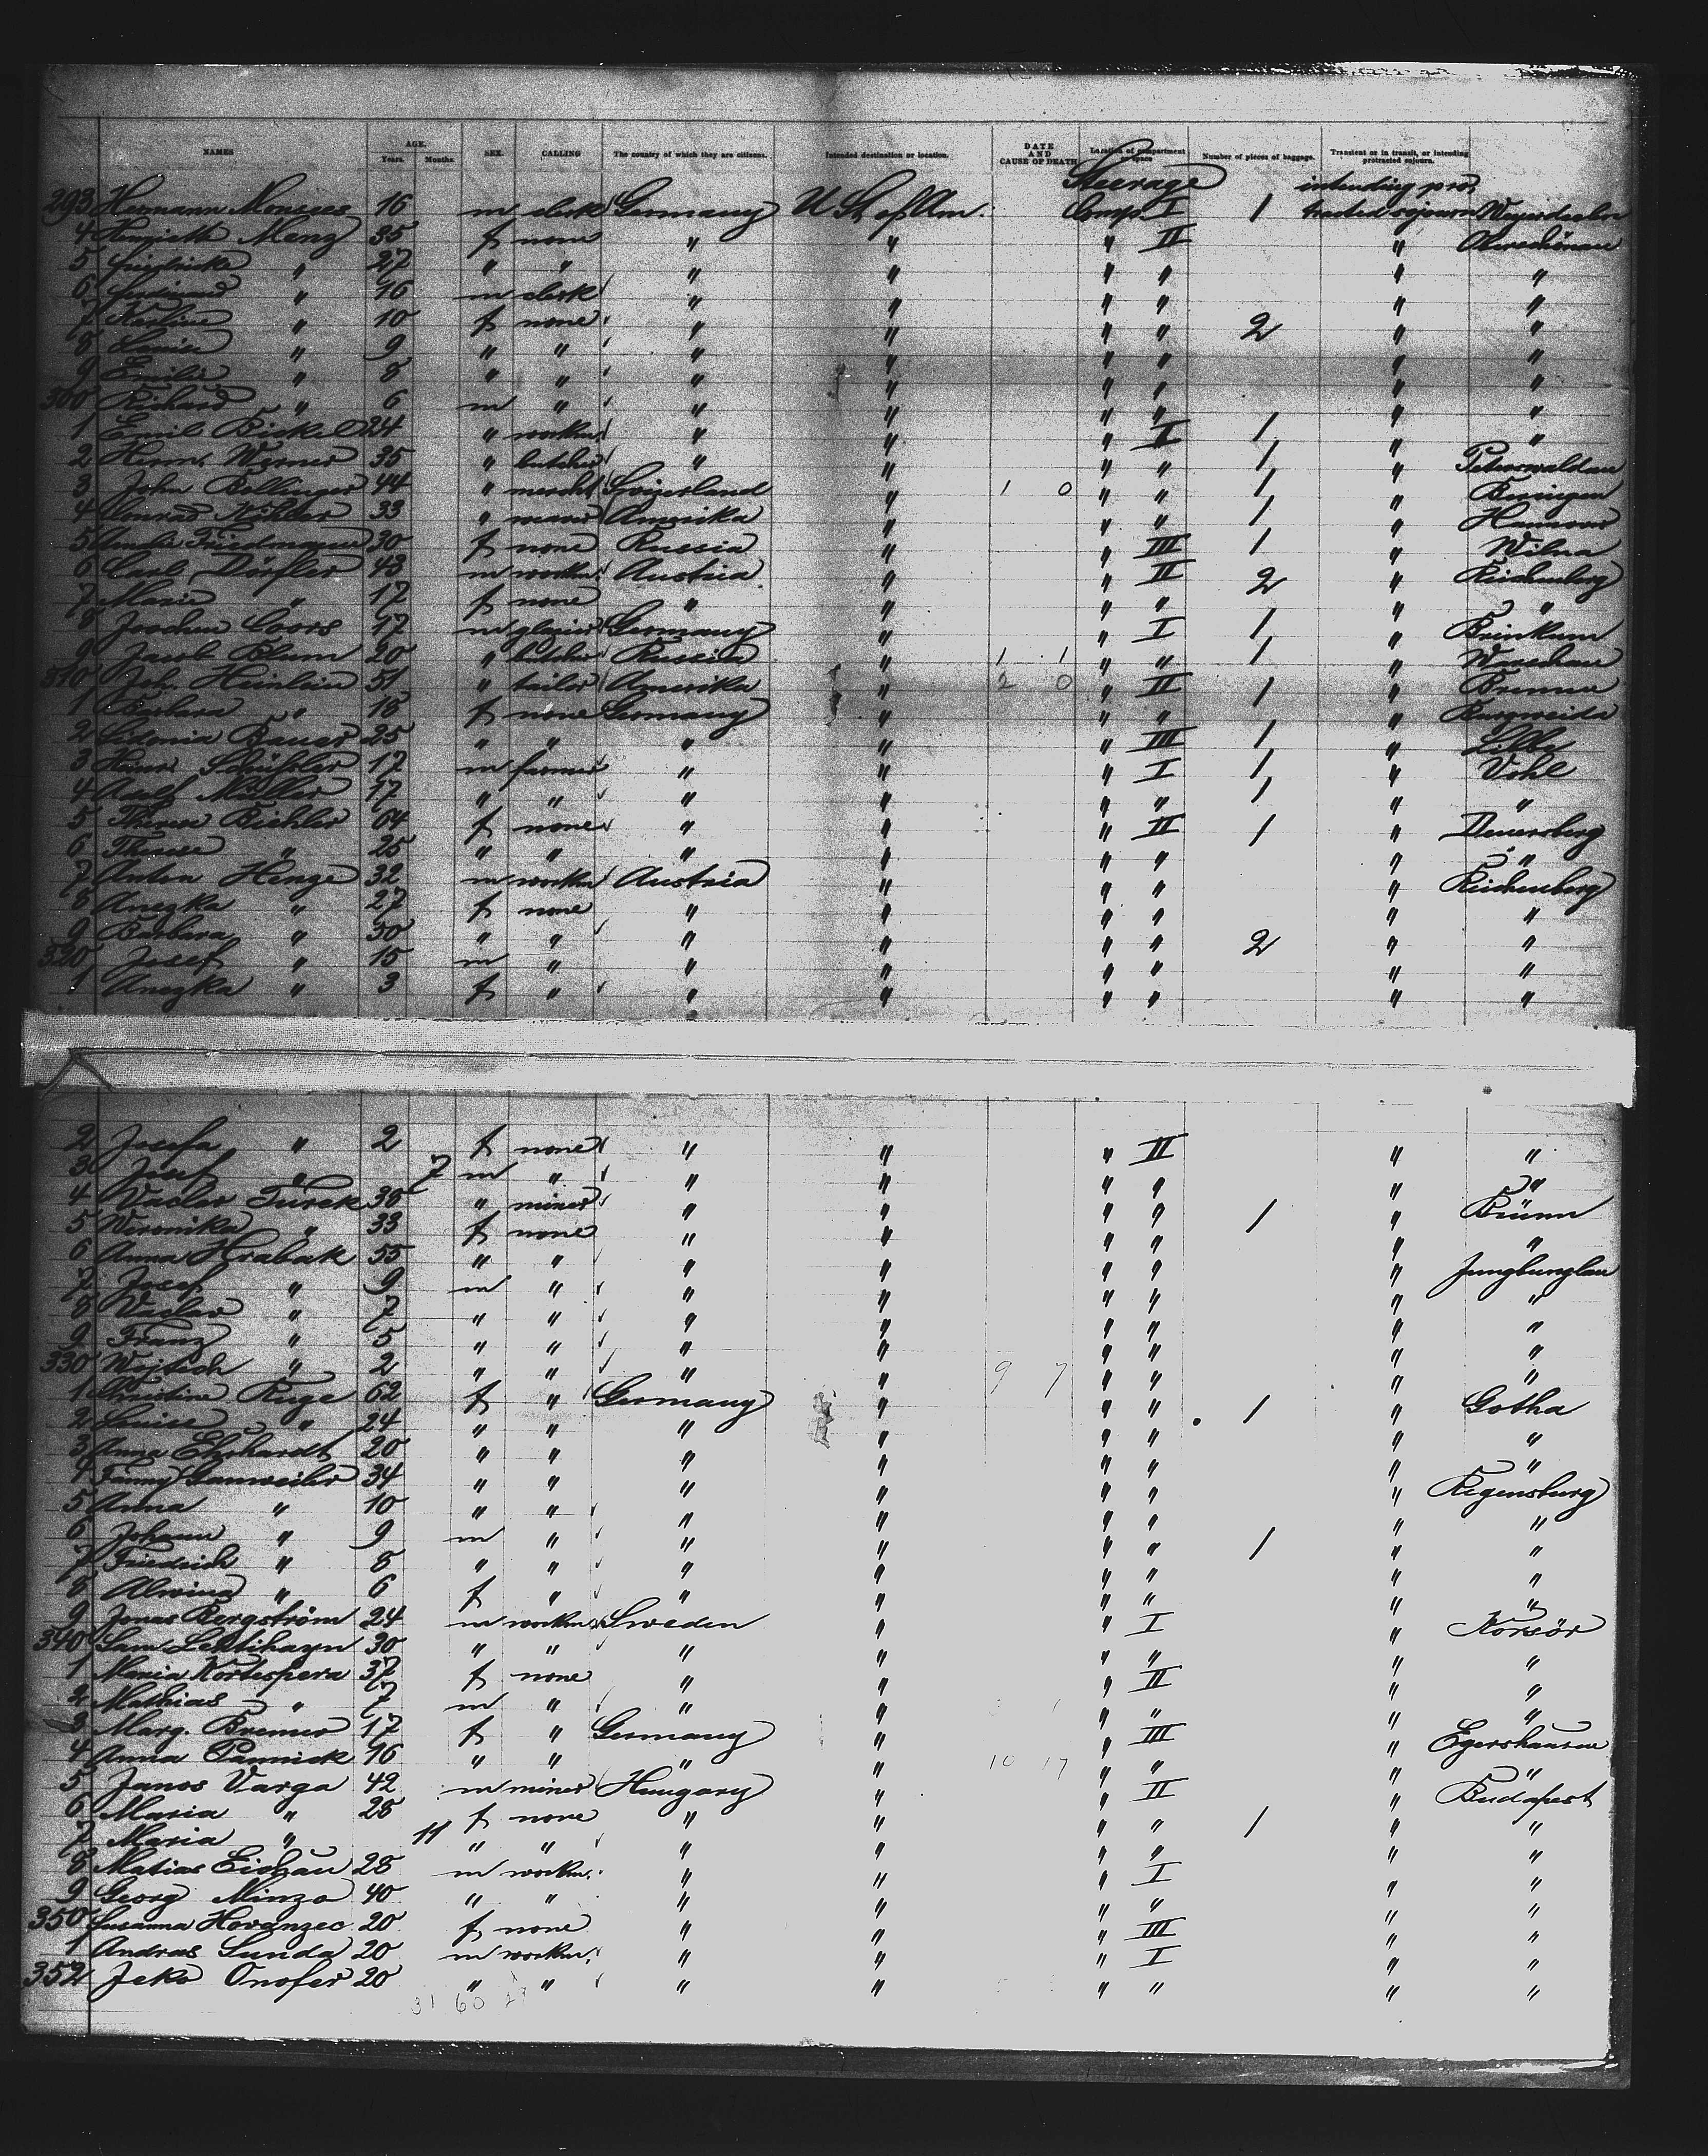 NAMES AGE. Years. Months. SEX. CALLING The country of which they are citizens. Intended destination or location. DATE AND CAUSE OF DEATH Location of compartment or space Number of pieces of baggage. Transient or in transit, or intending protracted sojourn.
Steerage intending pro
293 Hermann 16 m clerk Germany U St of Am. Comp. I 1 tracted sojourn
4 Menz 35 f none " " " II "
5 " 27 " " " " " " " "
6 " 16 m clerk " " " " " "
7 " 10 f none " " " " 2 " "
8 " 9 " " " " " " " "
9 " 8 " " " " " " " "
300 Richard " 6 m " " " " " " "
1 Emil 24 " workm. " " " I 1 " "
2 Werner 35 " butcher " " " " 1 " Peterswaldau
3 John Bollinger 44 " merch. " 1 0 " " 1 " Beringen
4 Conrad Köhler 33 " Amerika " " " 1 " Hannover
5 Friedmann 30 f none Russia " " III 1 " Wilna
6 Carl Dörfler 43 m workm. Austria " " II 2 " Reichenberg
7 Marie " 17 f none " " " " " "
8 Joachim Coors 17 m glazier Germany " " I 1 " Brinkum
9 Jacob Blum 20 " butcher Russia " 1 1 " " 1 " Warschau
310 Joh. Heinlein 51 " tailor Amerika " 2 0 " II 1 " Bremen
1 Barbara " 18 f none Germany " " " "
2 Bauer 25 " " " " " III 1 "
3 17 m farmer " " " I 1 " Vohl
4 Adolf Müller 17 " " " " " " 1 " "
5 Bichler 64 f none " " " II 1 "
6 Therese " 25 " " " " " " " "
7 Anton Henge 32 m workm. Austria " " " " Reichenberg
8 Anezka " 27 f none " " " " " "
9 Barbara " 50 " " " " " " 2 " "
320 Josef " 15 m " " " " " " "
1 Anezka " 3 f " " " " " " "
2 Josefa " 2 f none " " " II " "
3 Josef " 7 m " " " " " " "
4 Vaclav Turek 38 " miner " " " " 1 " Brünn
5 Weronika " 33 f none " " " " " "
6 Anna Hrabak 55 " " " " " " " Jungbunzlau
7 Josef " 9 m " " " " " " "
8 Vaclav " 7 " " " " " " " "
9 Franz " 5 " " " " " " " "
330 Wojtech " 2 " " " " 9 7 " " " "
1 Christine Ruge 62 f " Germany " " " 1 " Gotha
2 Luise " 24 " " " " " " " "
3 Anna Ehrhardt 20 " " " " " " " "
4 Fanny Ganweiler 34 " " " " " " " Regensburg
5 Anna " 10 " " " " " " " "
6 Johann " 9 m " " " " " 1 " "
7 Friedrich " 8 " " " " " " " "
8 Alwina " 6 f " " " " " " "
9 Jonas Bergström 24 m workm. Sweden " " I " Korsör
340 30 " " " " " " " "
1 Maria 37 f none " " " II " "
2 Mathias " 7 m " " " " " " "
3 Marg. Bremer 17 f " Germany " " III " Egershausen
4 Anna Pannick 16 " " " " 10 17 " " " "
5 Janos Varga 42 m miner Hungary " " II " Budapest
6 Maria " 28 f none " " " " 1 " "
7 Maria " 11 " " " " " " " "
8 Matias 28 m workm. " " " I " "
9 Georg Minzo 40 " " " " " " " "
350 Susanna Hovanzec 20 f none " " " III " "
1 Andras Sunda 20 m workm. " " " I " "
352 Jeko Onofer 20 " " " " " " " "
31 60